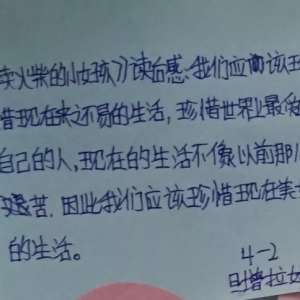 卖火柴的小女孩》读后感:我们应该珍
惜现在来之不易的生活,珍惜世界上最爱
自己的人,现在的生活不像以前那
艰苦。因此我们应该珍惜现在美
的生活。
4-2